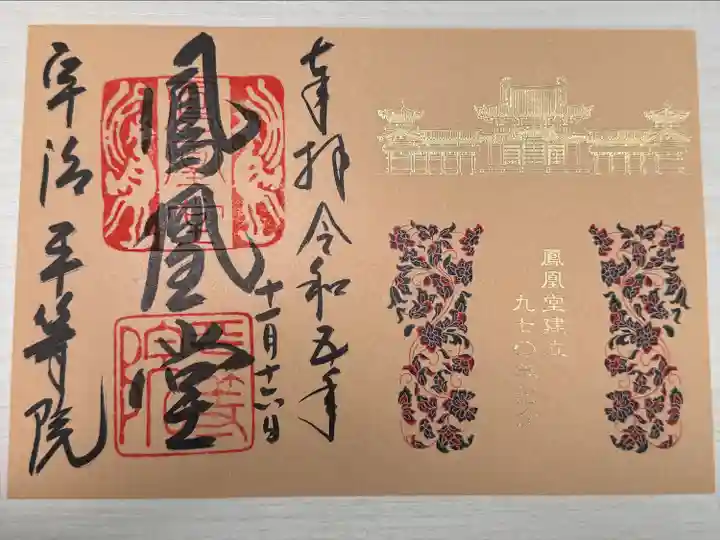 鳳凰堂建立
九七〇年記念
奉拝 令和五年
十一月十六日
鳳凰堂
平等院
宇治 平等院